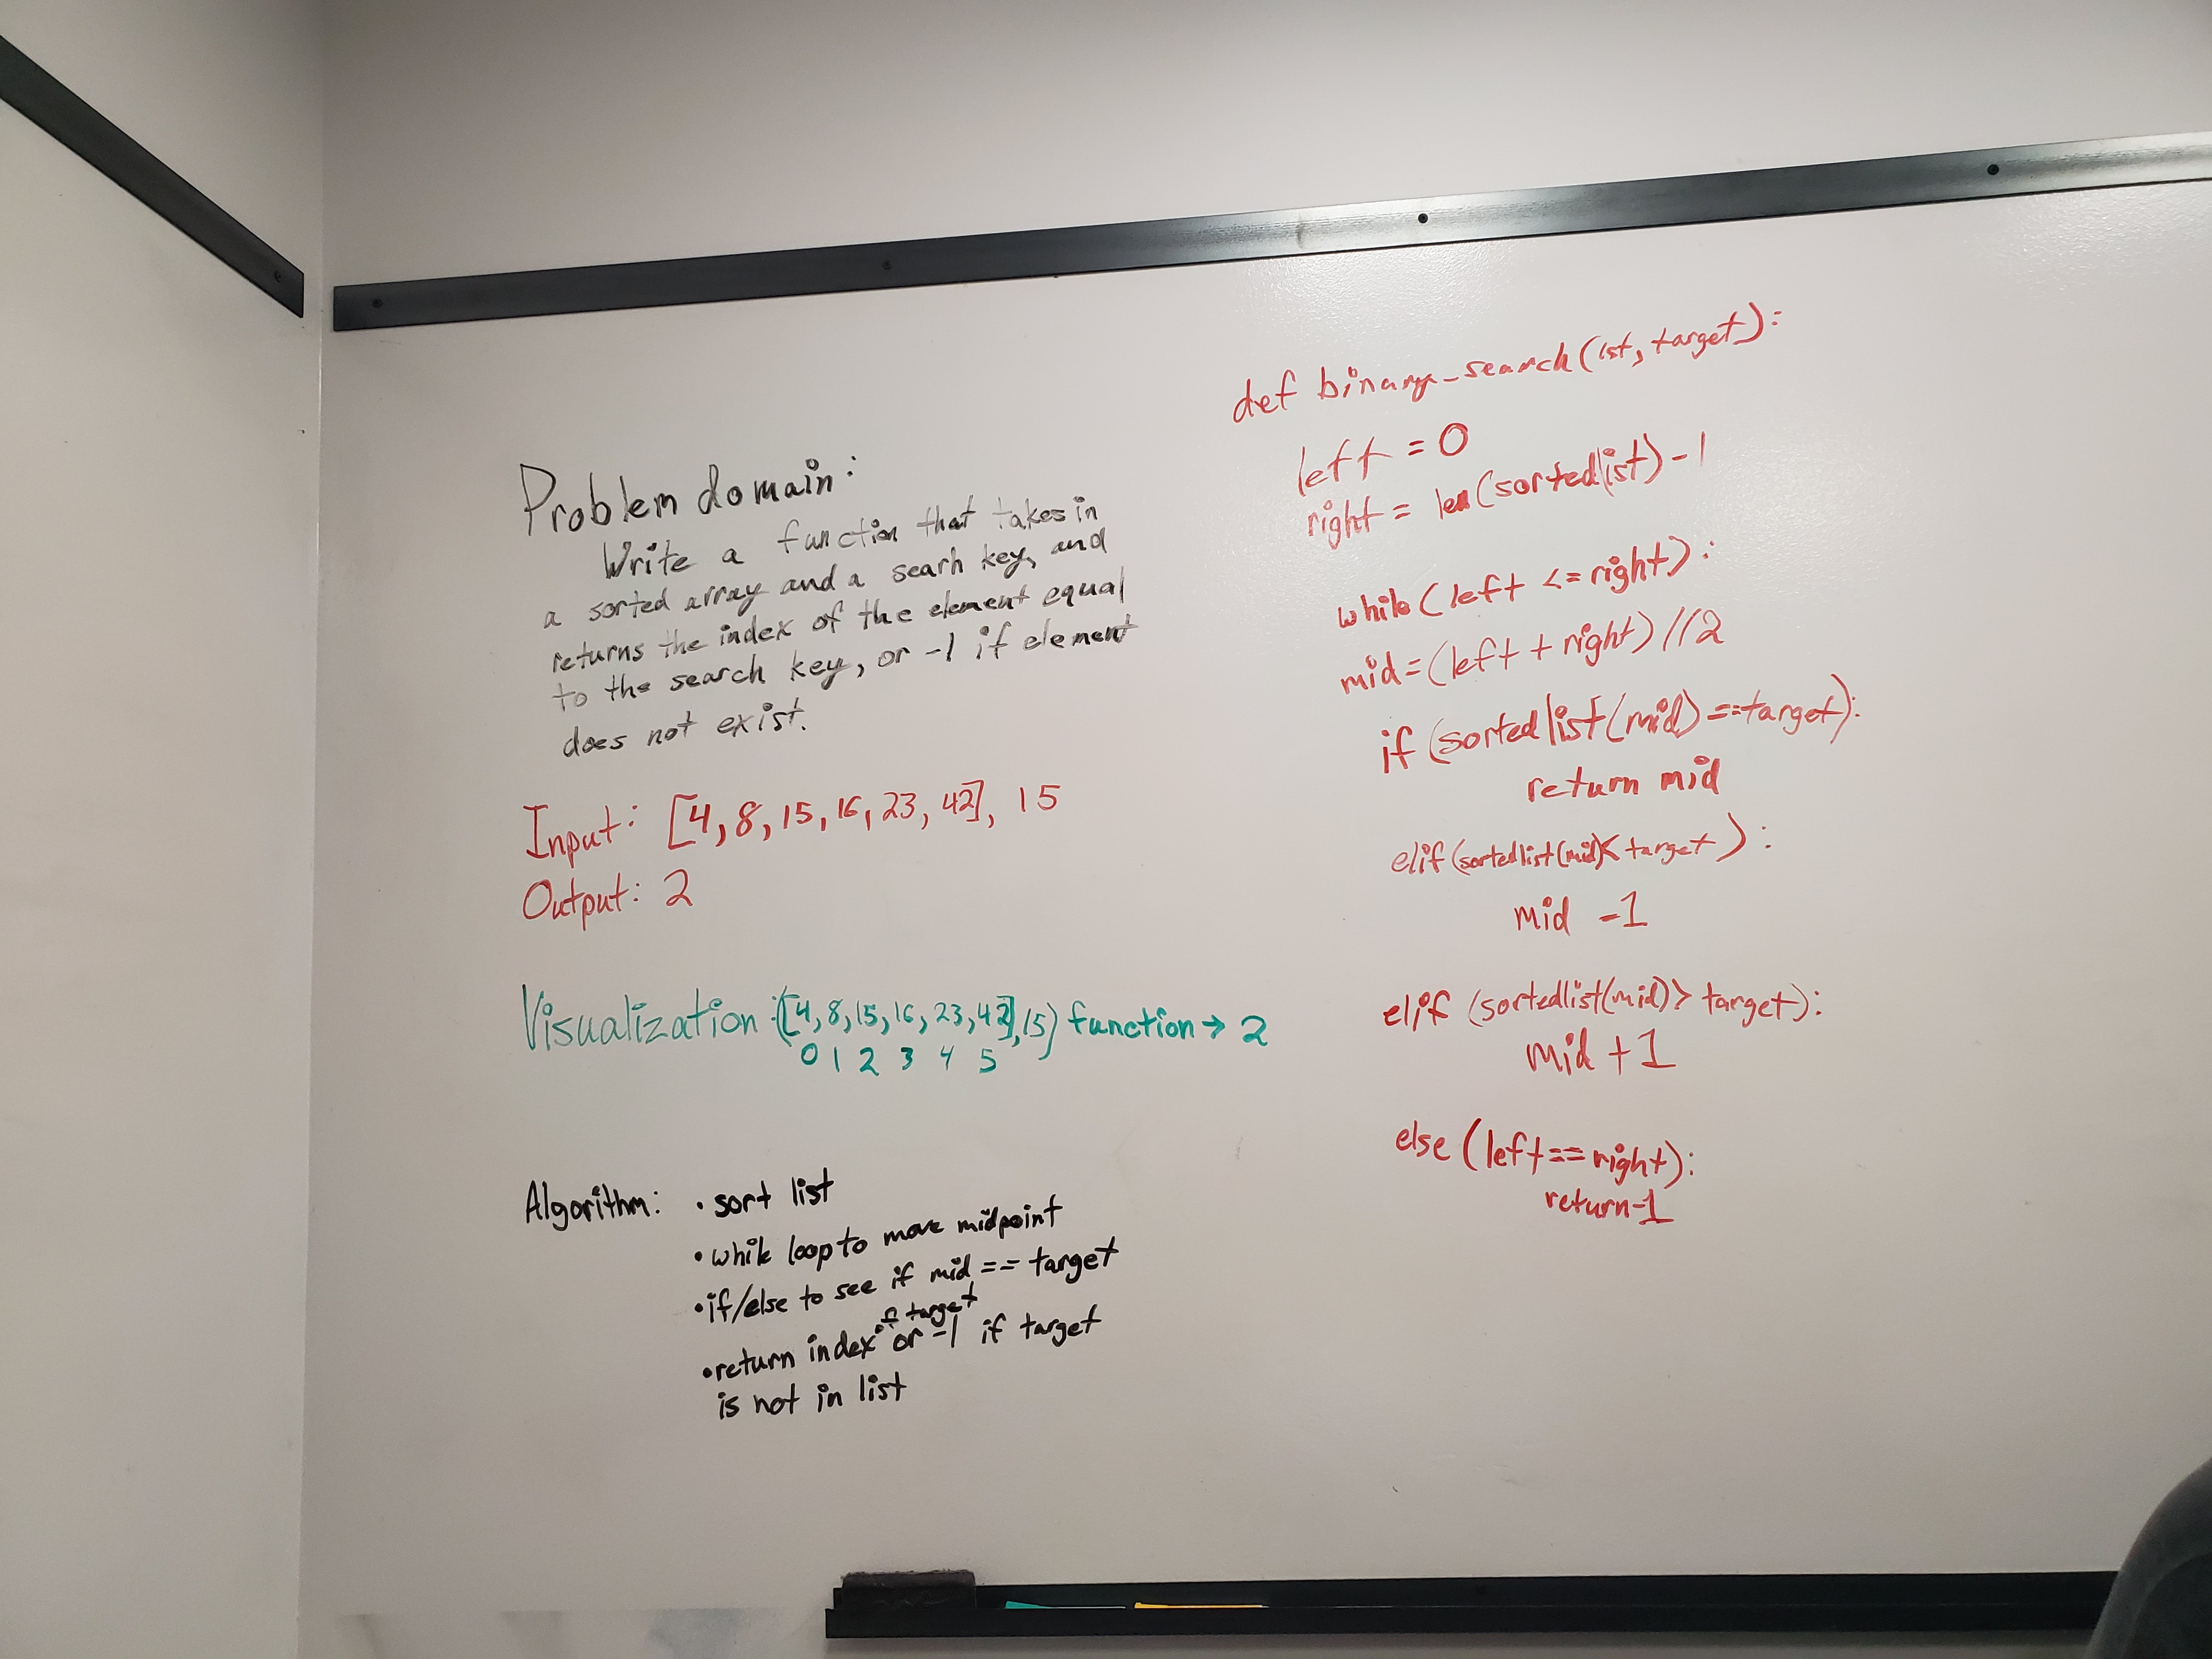 Problem domain:
Write a function that takes in
a sorted array and a searh key, and
returns the index of the element equal
to the search key, or -1 if element
does not exist.
Input: [4, 8, 15, 16, 23, 42], 15
Output: 2
Visualization: ([4, 8, 15, 16, 23, 42], 15) function → 2
0 1 2 3 4 5
Algorithm: • sort list
• while loop to move midpoint
• if/else to see if mid == target
of target
• return index or -1 if target
is not in list
def binary_search(lst, target):
left = 0
right = len(sortedlist) - 1
while (left <= right):
mid = (left + right) // 2
if (sortedlist(mid) == target):
return mid
elif (sortedlist(mid) < target):
mid -1
elif (sortedlist(mid) > target):
mid +1
else (left == right):
return -1